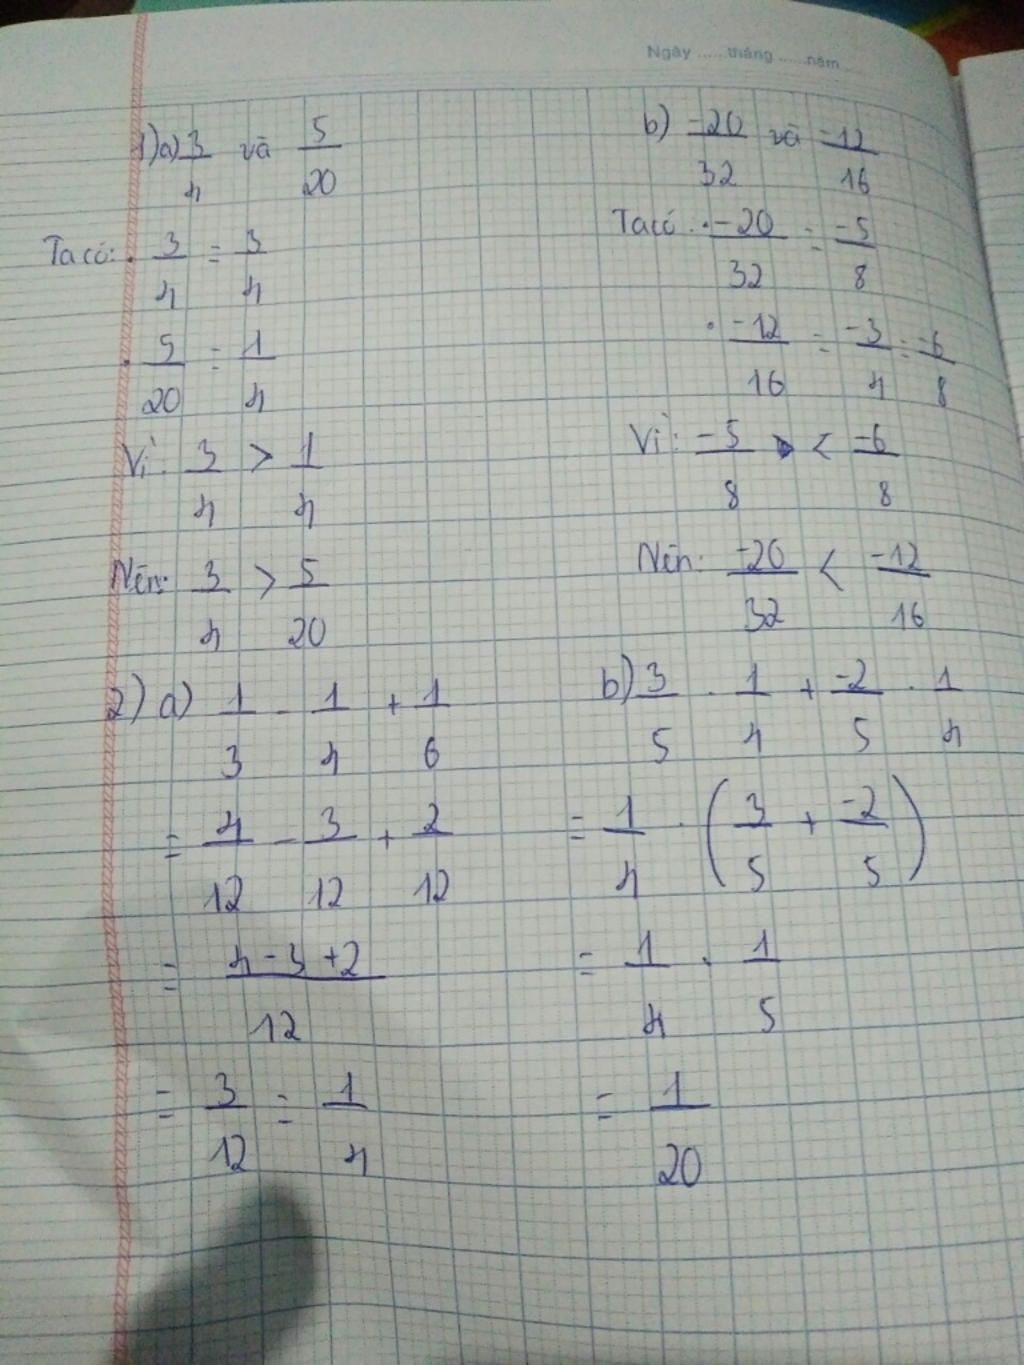 Ngày ......tháng ......năm......
1) a) 3/4 và 5/20
Ta có: • 3/4 = 3/4
• 5/20 = 1/4
Vì: 3/4 > 1/4
Nên: 3/4 > 5/20
b) -20/32 và -12/16
Ta có: • -20/32 = -5/8
• -12/16 = -3/4 = -6/8
Vì: -5/8 < -6/8
Nên: -20/32 < -12/16
2) a) 1/3 - 1/4 + 1/6
= 4/12 - 3/12 + 2/12
= (4 - 3 + 2)/12
= 3/12 = 1/4
b) 3/5 . 1/4 + -2/5 . 1/4
= 1/4 . (3/5 + -2/5)
= 1/4 . 1/5
= 1/20